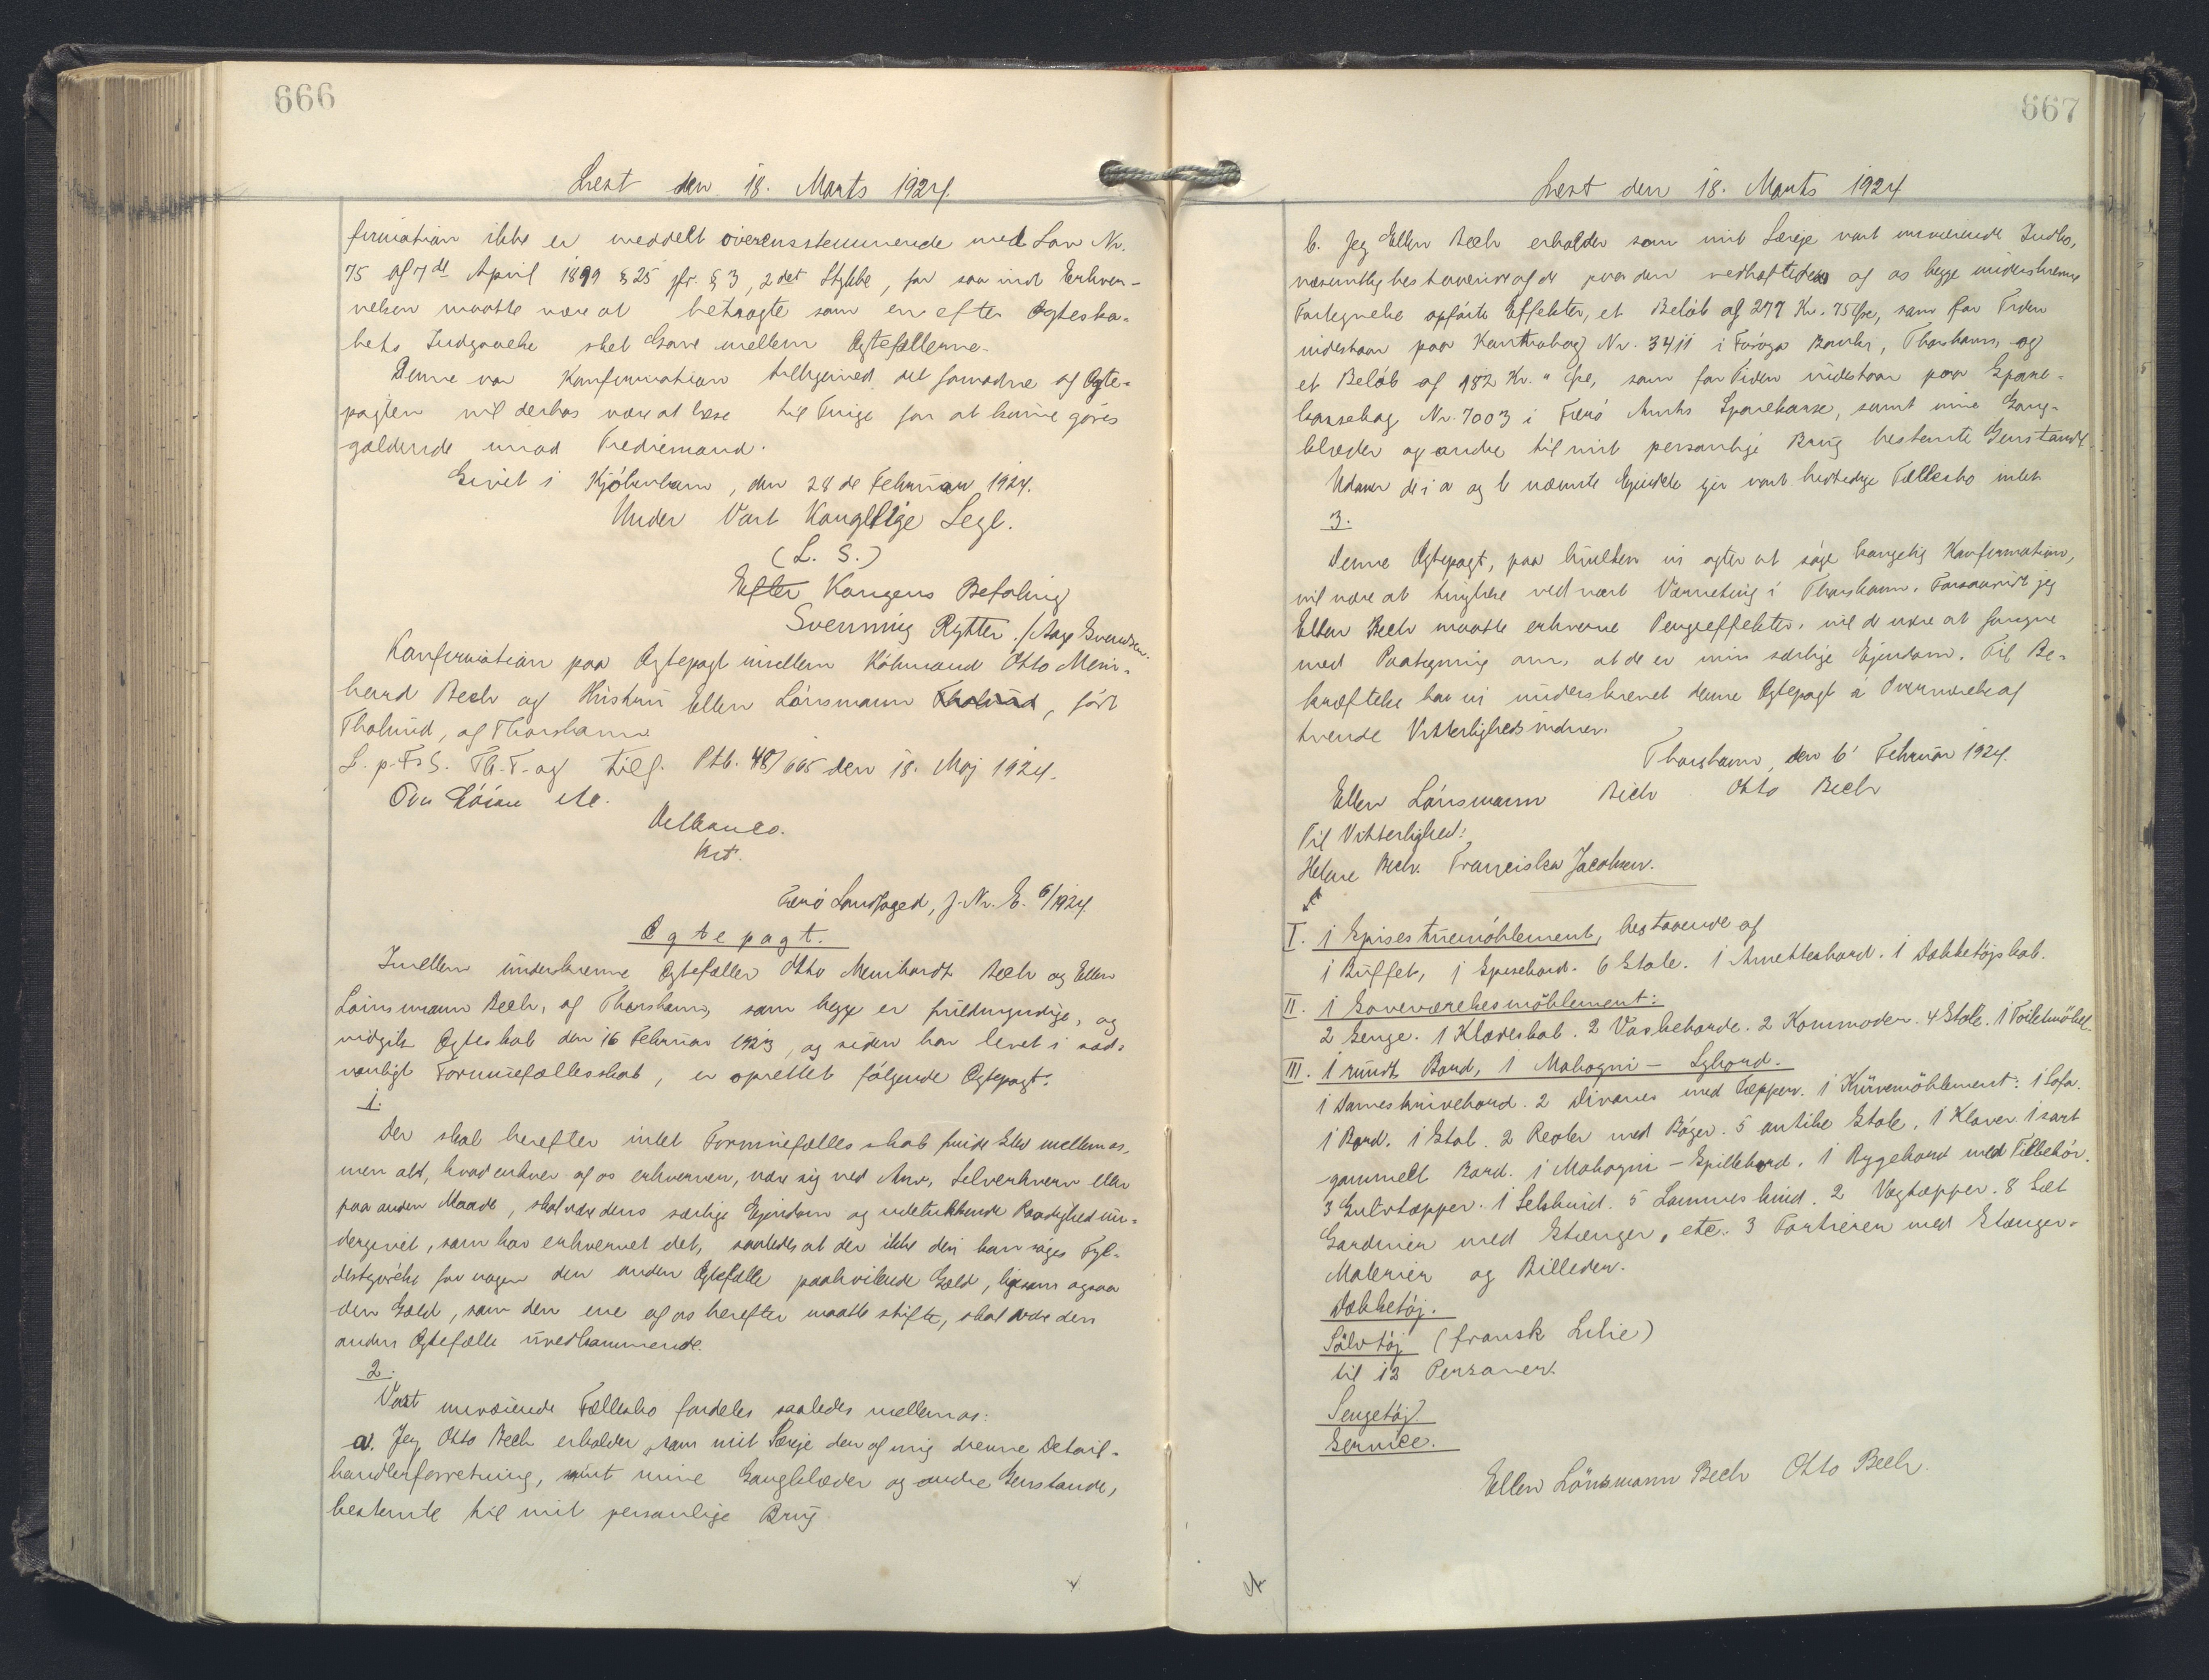 666
Læst den 18. Marts 1924.
firmation ikke er meddelt overensstemmende med Lov Nr.
75 af 7de April 1899 § 25 jfr. § 3, 2det Stykke, for saa vidt Erhver-
velsen maatte være at betragte som en efter Ægteska-
bets Indgaaelse sket Gave mellem Ægtefællerne.
Denne vor Konfirmation tilligemed det fornødne af Ægte-
pagten vil derhos være at læse til Tinge for at kunne gøres
gældende imod Trediemand.
Givet i Kjöbenhavn, den 28de Februar 1924.
Under Vort Kongelige Segl.
(L. S.)
Efter Kongens Befaling
Svenning Rytter. / Aage Svendsen.
Konfirmation paa Ægtepagt mellem Köbmand Otto Mein-
hard Bech og Hustru Ellen Lönsmann Tholund, født
Tholund, af Thorshavn
L. p. F. s. Th. T. og tilf. Ptb. 48/665 den 18. Maj 1924.
Færö Landfoged, J. Nr. E. 6/1924.
Ægtepagt.
Imellem underskrevne Ægtefæller Otto Meinhardt Bech og Ellen
Lönsmann Bech, af Thorshavn, som begge er fuldmyndige, og
indgik Ægteskab den 16 Februar 1923, og siden har levet i sæd-
vanligt Formuefællesskab, er oprettet følgende Ægtepagt.
1.
Der skal herefter intet Formuefællesskab finde Sted mellem os,
men alt, hvad enhver af os erhverver, være sig ved Arv, Selverhverv eller
paa anden Maade, skal være dens særlige Ejendom og udelukkende Raadighed un-
dergivet, som har erhvervet det, saaledes at der ikke deri kan søges Fyl-
destgörelse for nogen den anden Ægtefælle paahvilende Gæld, ligesom ogsaa
den Gæld, som den ene af os herefter maatte stifte, skal være den
anden Ægtefælle uvedkommende.
2.
Vort nuværende Fællesbo fordeles saaledes mellem os:
a. Jeg, Otto Bech erholder som mit Særeje den af mig drevne Detail-
handlerforretning, samt mine Gangklæder og andre Genstande,
bestemte til mit personlige Brug
667
Læst den 18. Marts 1924
b. Jeg Ellen Bech erholder som mit Særeje vort nuværende Indbo,
væsentlig bestaaende af de paa den vedhæftede og af os begge underskrevne
Fortegnelse opförte Effekter, et Beløb af 277 Kr. 75 Øre, som for Tiden
indestaar paa Kontrabog Nr. 3411 i Föroya Banki, Thorshavn, og
et Beløb af 182 Kr. " Øre, som for Tiden indestaar paa Spare-
kassebog Nr. 7003 i Færö Amts Sparekasse, samt mine Gang-
klæder og andre til mit personlige Brug bestemte Genstande.
Udover de i a og b nævnte Ejendele ejer vort hidtidige Fællesbo intet
3.
Denne Ægtepagt, paa hvilken vi agter at søge kongelig Konfirmation,
vil være at tinglæse ved vort Værneting i Thorshavn. Forsaavidt jeg
Ellen Bech maatte erhverve Pengeeffekter, vil de være at forsyne
med Paategning om, at de er min særlige Ejendom. Til Be-
kræftelse har vi underskrevet denne Ægtepagt i Overværelse af
tvende Vitterlighedsvidner.
Thorshavn, den 6' Februar 1924.
Ellen Lönsmann Bech Otto Bech
Til Vitterlighed:
Helene Bech. Franciska Jacobsen.
I. 1 Spisestuemöblement, bestaaende af
1 Buffet, 1 Spisebord. 6 Stole. 1 Anretterbord. 1 Dækketøjskab.
II. 1 Soveværelsesmöblement:
2 Senge. 1 Klædeskab. 2 Vaskeborde. 2 Kommoder. 4 Stole. 1 Toiletmöbel.
III. 1 rundt Bord, 1 Mahogni - Sybord.
1 Dameskrivebord. 2 Divaner med Tæpper. 1 Kurvemöblement: 1 Sofa.
1 Bord. 1 Stol. 2 Reoler med Bøger. 5 antike Stole, 1 Klaver 1 sort
gammelt Bord. 1 Mahogni - Spillebord. 1 Rygebord med Tilbehör.
3 Gulvtæpper. 1 Sælskind. 5 Lammeskind. 2 Vægtæpper. 8 Sæt
Gardiner med Stænger, etc. 3 Portierer med Stænger.
Malerier og Billeder.
Dækketøj.
Sölvtøj (fransk Lilie)
til 12 Personer.
Sengetøj.
Service.
Ellen Lönsmann Bech Otto Bech.